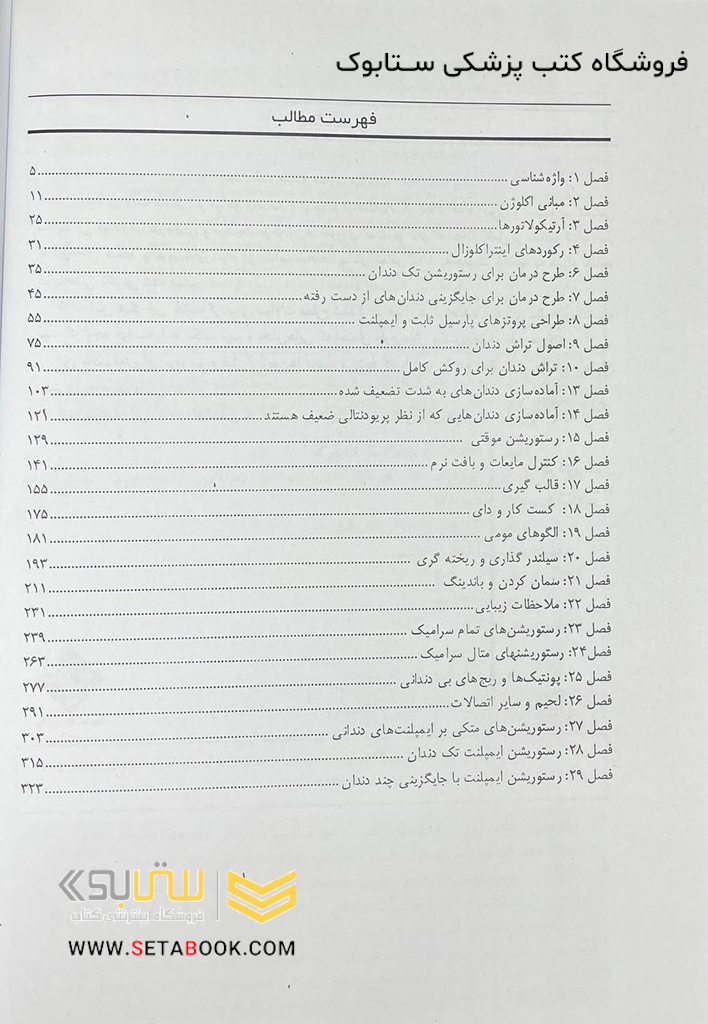 فروشگاه کتب پزشکی ستابوک
فهرست مطالب
فصل ۱: واژه‌شناسی ۵
فصل ۲: مبانی اکلوژن ۱۱
فصل ۳: آرتیکولاتورها ۲۵
فصل ۴: رکوردهای اینتراکلوزال ۳۱
فصل ۶: طرح درمان برای رستوریشن تک دندان ۳۵
فصل ۷: طرح درمان برای جایگزینی دندان‌های از دست رفته ۴۵
فصل ۸: طراحی پروتزهای پارسیل ثابت و ایمپلنت ۵۵
فصل ۹: اصول تراش دندان ۷۵
فصل ۱۰: تراش دندان برای روکش کامل ۹۱
فصل ۱۳: آماده‌سازی دندان‌های به شدت تضعیف شده ۱۰۳
فصل ۱۴: آماده‌سازی دندان‌هایی که از نظر پریودنتالی ضعیف هستند ۱۲۱
فصل ۱۵: رستوریشن موقتی ۱۲۹
فصل ۱۶: کنترل مایعات و بافت نرم ۱۴۱
فصل ۱۷: قالب گیری ۱۵۵
فصل ۱۸: کست کار و دای ۱۷۵
فصل ۱۹: الگوهای مومی ۱۸۱
فصل ۲۰: سیلندر گذاری و ریخته گری ۱۹۳
فصل ۲۱: سمان کردن و باندینگ ۲۱۱
فصل ۲۲: ملاحظات زیبایی ۲۳۱
فصل ۲۳: رستوریشن‌های تمام سرامیک ۲۳۹
فصل ۲۴: رستوریشنهای متال سرامیک ۲۶۳
فصل ۲۵: پونتیک‌ها و ریج‌های بی دندانی ۲۷۷
فصل ۲۶: لحیم و سایر اتصالات ۲۹۱
فصل ۲۷: رستوریشن‌های متکی بر ایمپلنت‌های دندانی ۳۰۳
فصل ۲۸: رستوریشن ایمپلنت تک دندان ۳۱۵
فصل ۲۹: رستوریشن ایمپلنت با جایگزینی چند دندان ۳۲۳
ستابوک
فروشگاه اینترنتی کتاب
WWW.SETABOOK.COM